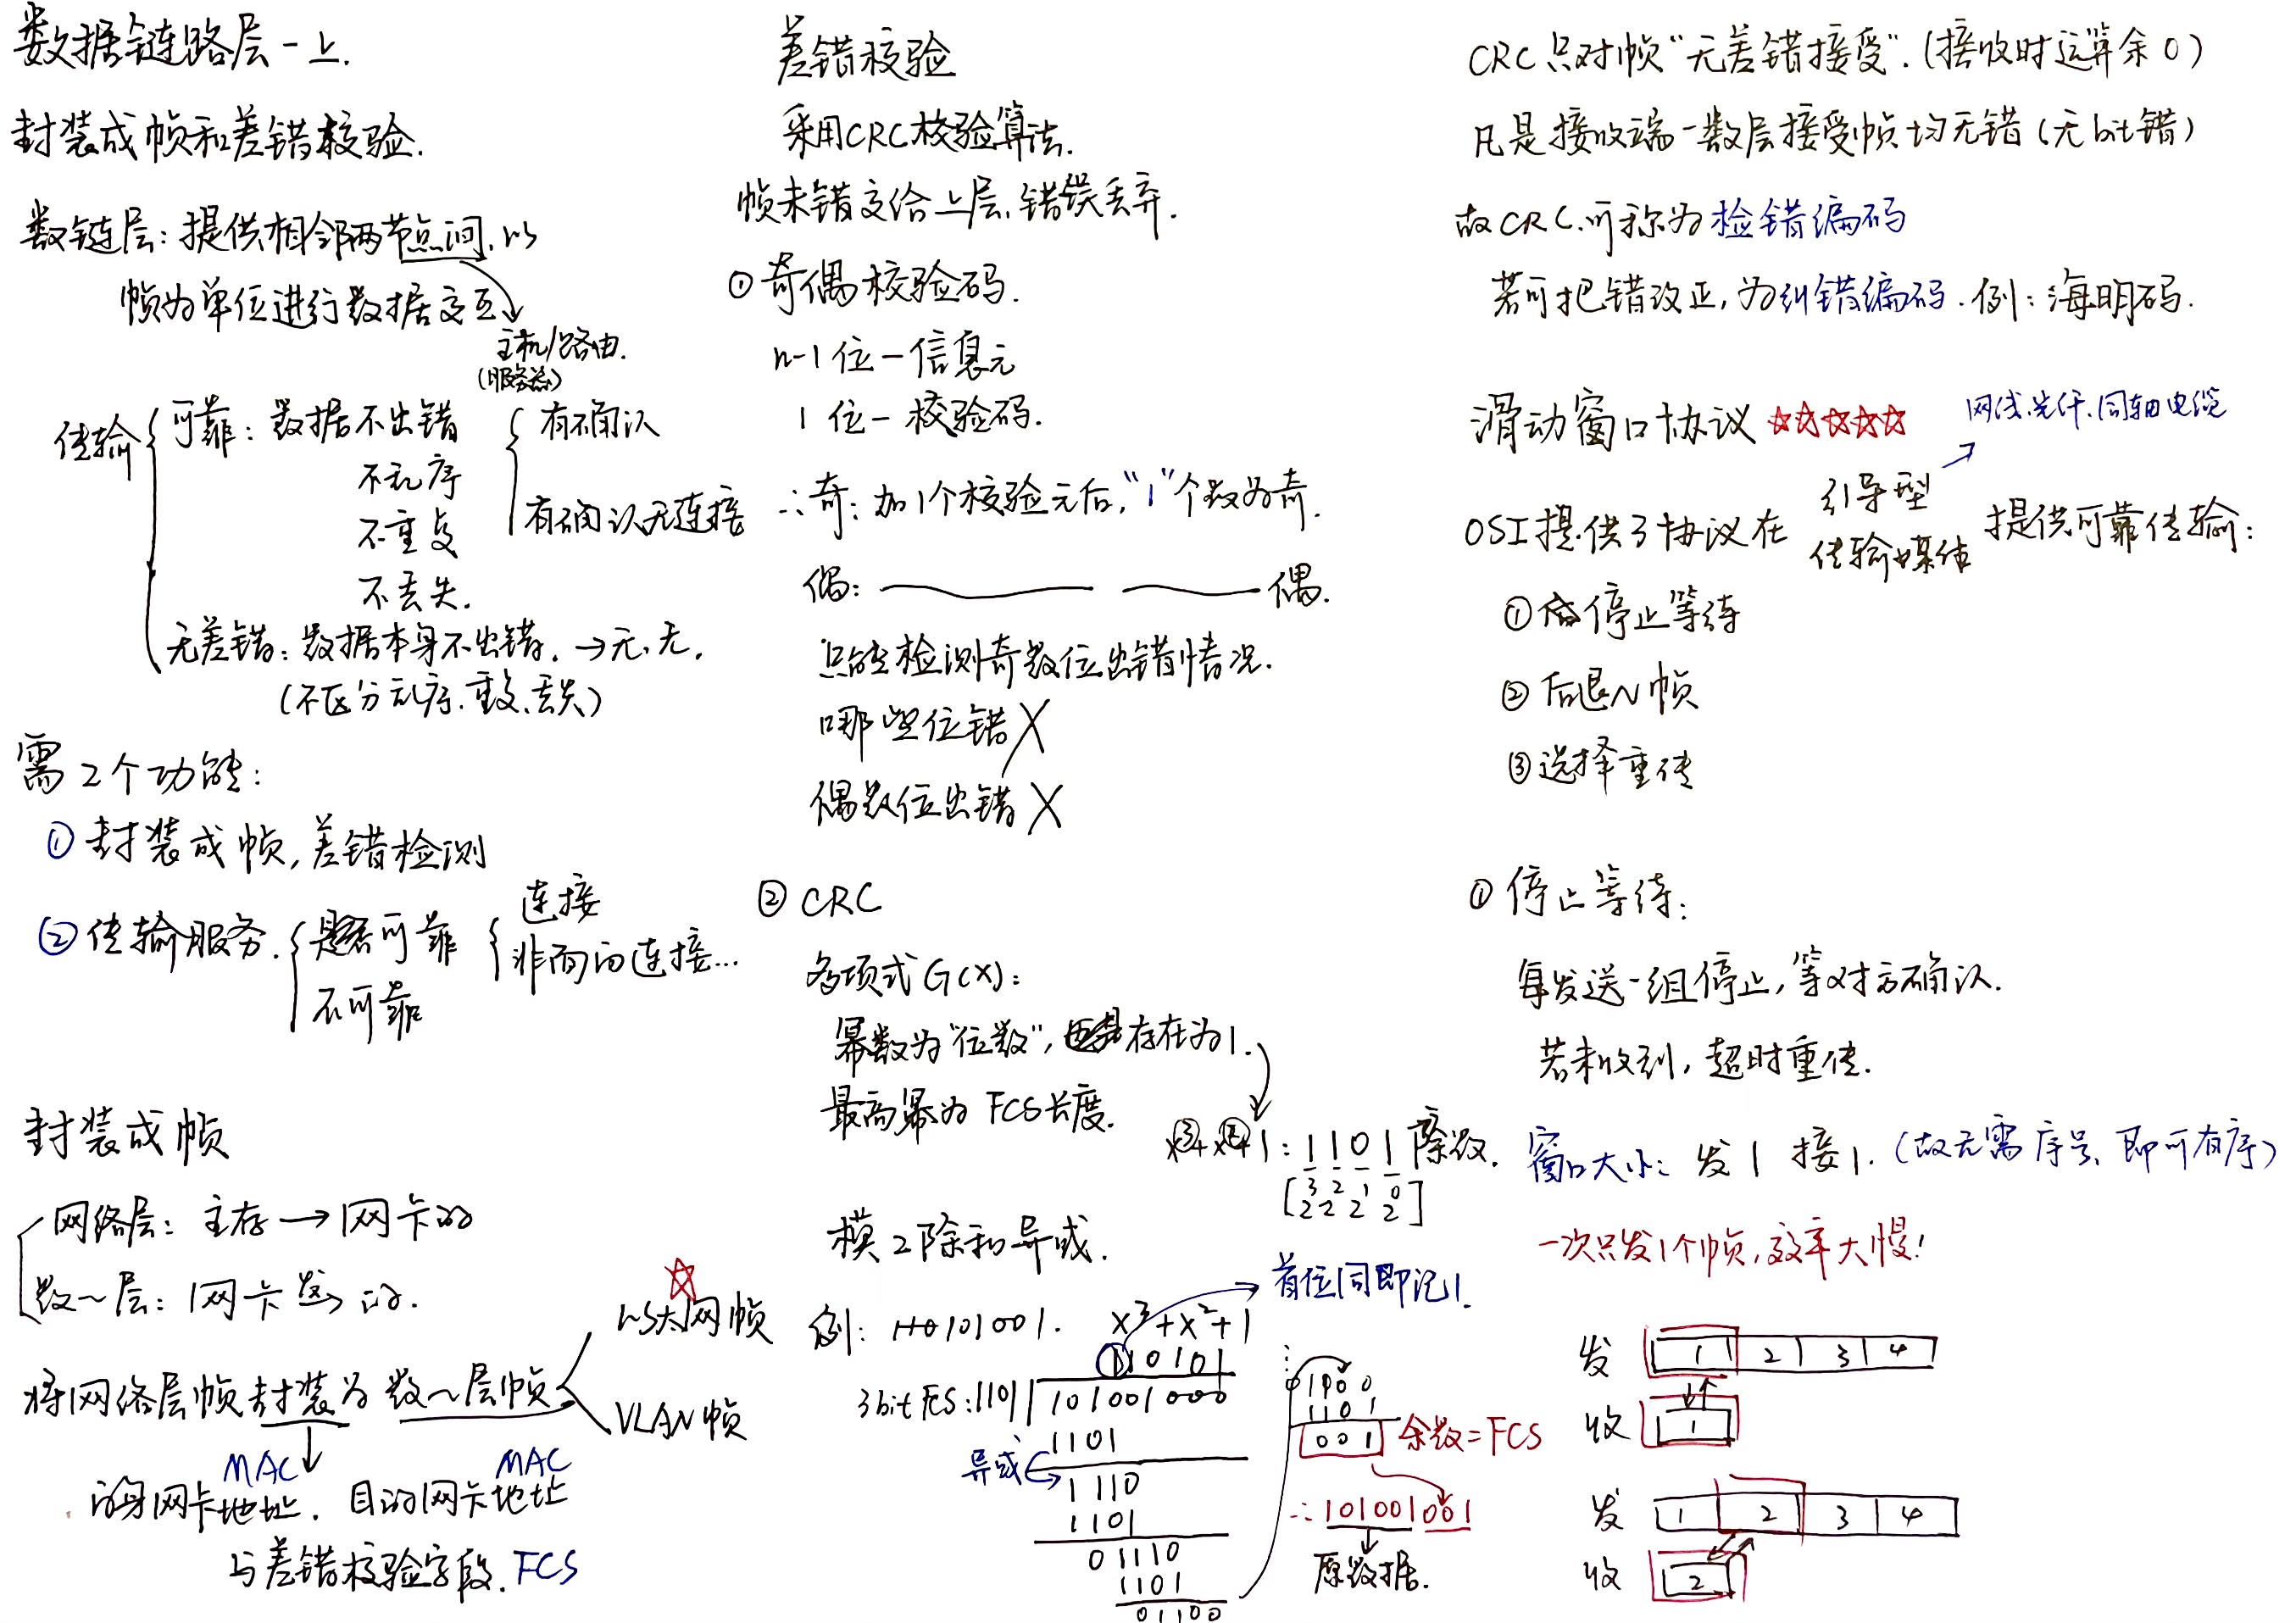 数据链路层-上.
封装成帧和差错校验.
数链层: 提供相邻两节点间, 以
帧为单位进行数据交互
主机/路由.
(服务器)
传输 可靠: 数据不出错
不乱序
不重复
不丢失.
有确认
有确认无连接
无差错: 数据本身不出错. →无、无.
(不区分乱序. 重复、丢失)
需2个功能:
① 封装成帧, 差错检测
② 传输服务. 是否可靠
不可靠
连接
非面向连接...
封装成帧
网络层: 主存→网卡的
数~层: 网卡发的.
将网络层帧封装为数~层帧
以太网帧
VLAN帧
MAC MAC
网卡地址. 目的网卡地址
与差错校验字段. FCS
差错校验
采用CRC校验算法.
帧未错交给上层, 错误丢弃.
① 奇偶校验码.
n-1位-信息元
1位-校验码.
∴奇: 加1个校验元后, "1"个数为奇.
偶: 偶.
只能检测奇数位出错情况.
哪些位错 X
偶数位出错 X
② CRC
多项式G(X):
幂数为"位数", 存在为1.
最高幂为FCS长度.
x³+x²+1: 1101 除数.
3 2 1 0
[2 2 2 2]
模2除和异或.
首位同即记1.
例: 101001. x³+x²+1
110101
3bit FCS: 1101 101001000
1101
异或
1110
1101
01110
1101
01100
01100
1101
001 余数=FCS
∴ 101001001
原数据.
CRC只对帧"无差错接受". (接收时运算余0)
凡是接收端-数层接受帧均无错(无bit错)
故CRC.可称为检错编码
若可把错改正, 为纠错编码. 例: 海明码.
滑动窗口协议 ☆☆☆☆☆
网线、光纤、同轴电缆
OSI提供3协议在 引导型传输媒体 提供可靠传输:
① 停止等待
② 后退N帧
③ 选择重传
① 停止等待:
每发送一组停止, 等对方确认.
若未收到, 超时重传.
窗口大小: 发1 接1. (故无需序号、即可有序)
一次只发1个帧, 效率大慢!
发 1 2 3 4
收 1
发 1 2 3 4
收 2